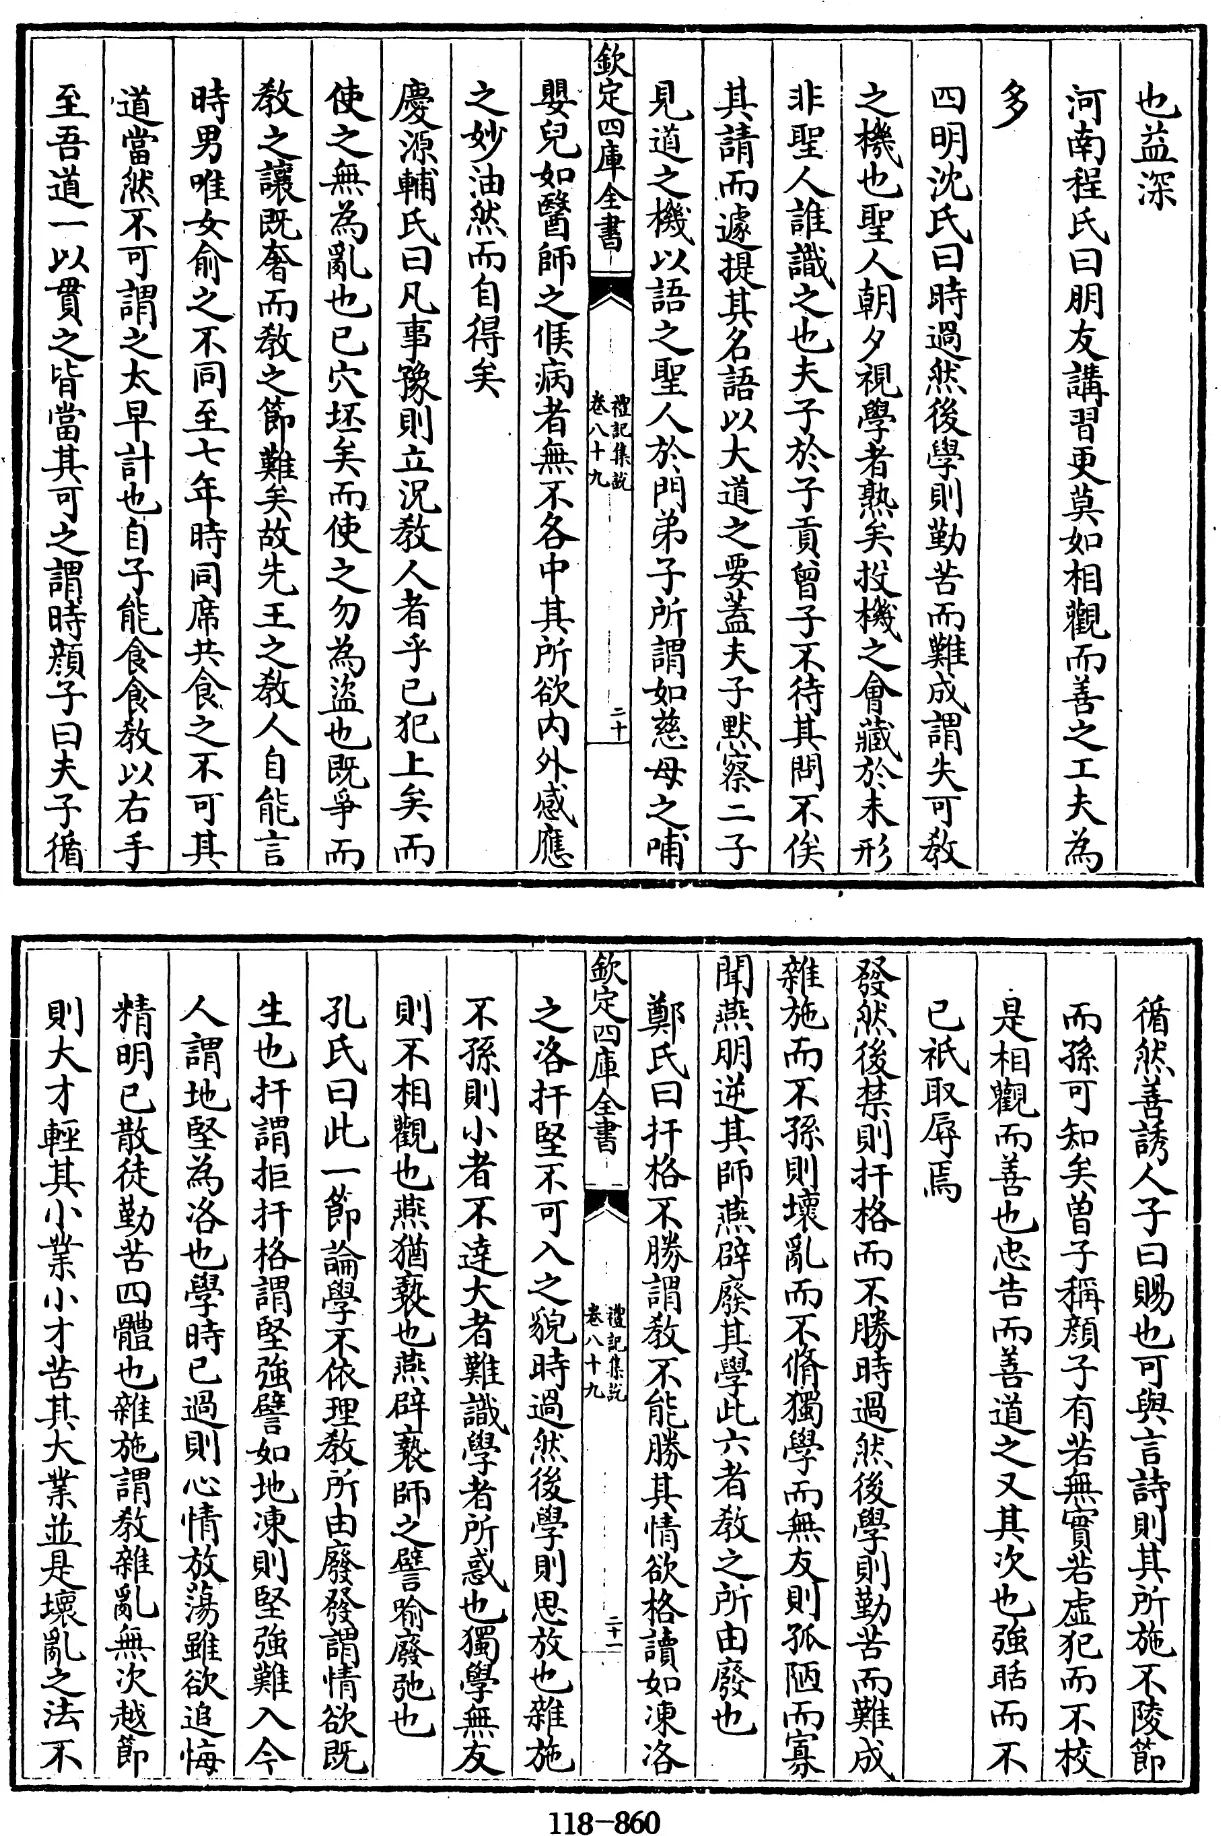 也益深
河南程氏曰朋友講習更莫如相觀而善之工夫為
多
四明沈氏曰時過然後學則勤苦而難成謂失可教
之機也聖人朝夕視學者熟矣投機之會藏於未形
非聖人誰識之也夫子於子貢曾子不待其問不俟
其請而遽提其名語以大道之要蓋夫子默察二子
見道之機以語之聖人於門弟子所謂如慈母之哺
欽定四庫全書
禮記集說
卷八十九
二十
嬰兒如醫師之候病者無不各中其所欲內外感應
之妙油然而自得矣
慶源輔氏曰凡事豫則立況教人者乎已犯上矣而
使之無為亂也已穴坯矣而使之勿為盜也既爭而
教之讓既奢而教之節難矣故先王之教人自能言
時男唯女俞之不同至七年時同席共食之不可其
道當然不可謂之太早計也自子能食食教以右手
至吾道一以貫之皆當其可之謂時顔子曰夫子循
循然善誘人子曰賜也可與言詩則其所施不陵節
而孫可知矣曽子稱顔子有若無實若虛犯而不校
是相觀而善也忠告而善道之又其次也強聒而不
已祇取辱焉
發然後禁則扞格而不勝時過然後學則勤苦而難成
雜施而不孫則壞亂而不脩獨學而無友則孤陋而寡
聞燕朋逆其師燕辟廢其學此六者教之所由廢也
鄭氏曰扞格不勝謂教不能勝其情欲格讀如凍洛
欽定四庫全書
禮記集說
卷八十九
二十一
之洛扞堅不可入之貌時過然後學則思放也雜施
不孫則小者不逹大者難識學者所惑也獨學無友
則不相觀也燕猶褻也燕辟褻師之譬喻廢弛也
孔氏曰此一節論學不依理教所由廢發謂情欲既
生也扞謂拒扞格謂堅強譬如地凍則堅強難入今
人謂地堅為洛也學時已過則心情放蕩雖欲追悔
精明已散徒勤苦四體也雜施謂教雜亂無次越節
則大才輕其小業小才苦其大業並是壞亂之法不
118-860